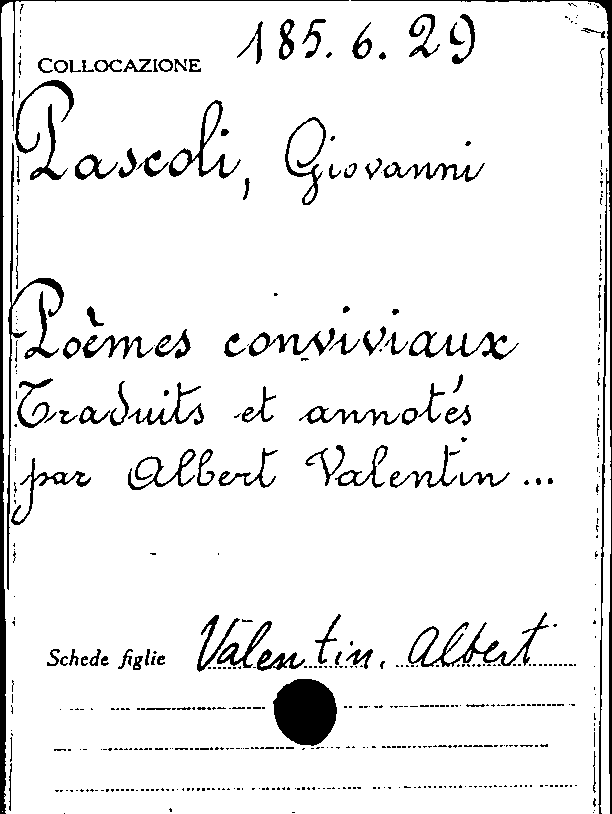 COLLOCAZIONE 185.6.29
Pascoli, Giovanni
Poèmes conviviaux
Traduits et annotés
par Albert Valentin ...
Schede figlie Valentin, Albert